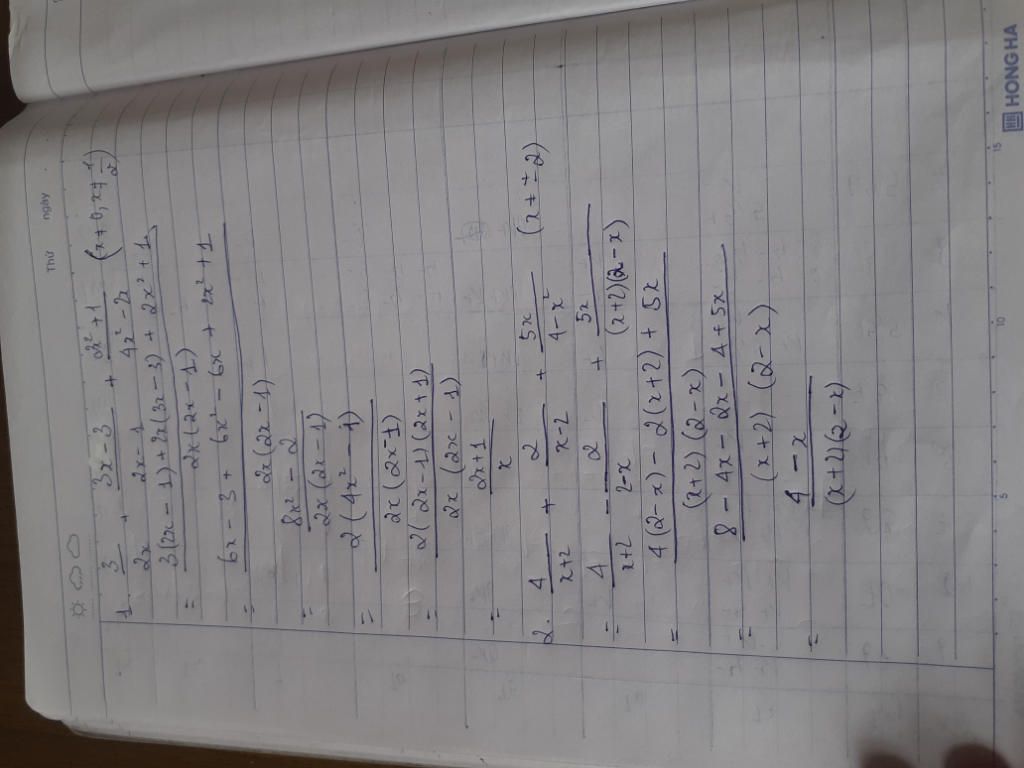 Thứ
ngày
1. 3/2x + (3x-3)/(2x-1) + (2x²+1)/(4x²-2x) (x≠0, x≠1/2)
= (3(2x-1)+2x(3x-3)+2x²+1)/(2x(2x-1))
= (6x-3+6x²-6x+2x²+1)/(2x(2x-1))
= (8x²-2)/(2x(2x-1))
= (2(4x²-1))/(2x(2x-1))
= (2(2x-1)(2x+1))/(2x(2x-1))
= (2x+1)/x
2. 4/(x+2) + 2/(x-2) + 5x/(4-x²) (x≠±2)
= 4/(x+2) - 2/(2-x) + 5x/((x+2)(2-x))
= (4(2-x)-2(x+2)+5x)/((x+2)(2-x))
= (8-4x-2x-4+5x)/((x+2)(2-x))
= (4-x)/((x+2)(2-x))
5
10
15
HONG HA